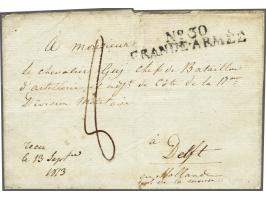 No 30
GRANDE-ARMÉE
A monsieur
le chevalier Guy Chef de Bataillon
d'artillerie de côte de la 17me
Division Militaire
à
Delft
en Hollande
recu
le 13 Septbre
1813